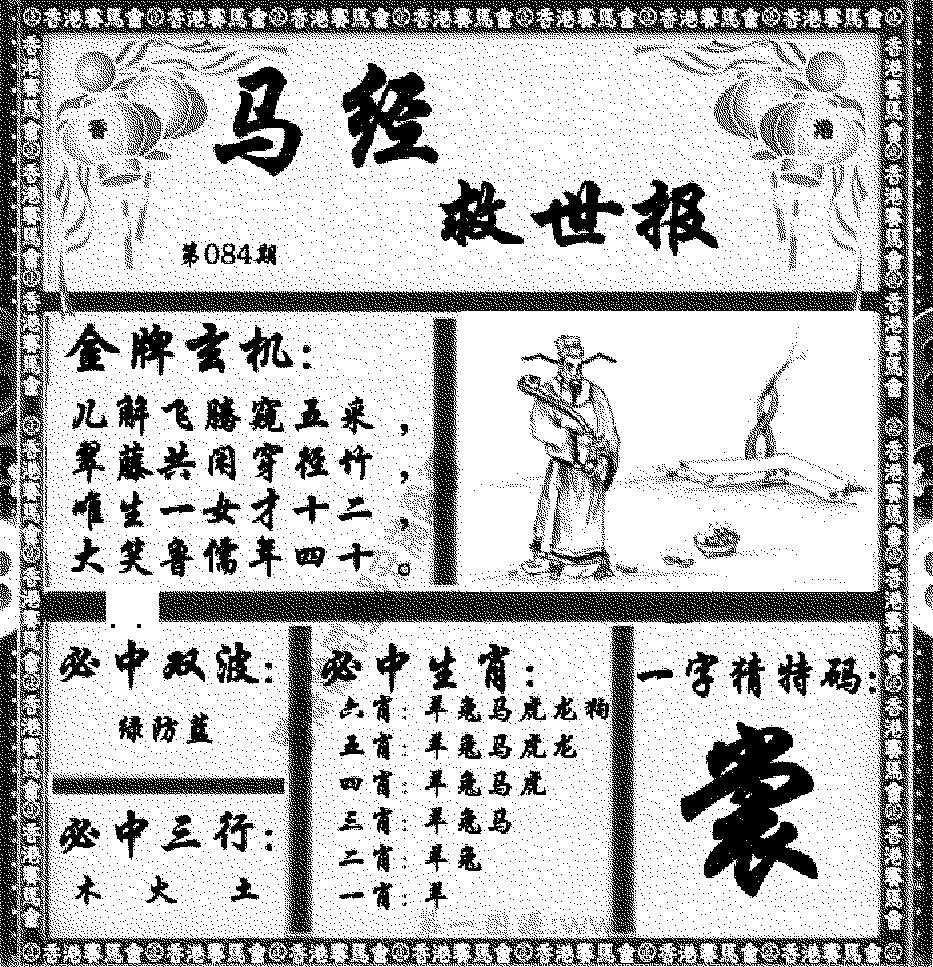 香港賽馬會 香港賽馬會 香港賽馬會 香港賽馬會 香港賽馬會 香港賽馬會 香港賽馬會
香
港
马经
救世报
第084期
金牌玄机:
儿解飞腾窥五采,
翠藤共闲穿径竹,
唯生一女才十二,
大笑鲁儒年四十。
必中双波:
绿防蓝
必中三行:
木 火 土
必中生肖:
六肖: 羊兔马虎龙狗
五肖: 羊兔马虎龙
四肖: 羊兔马虎
三肖: 羊兔马
二肖: 羊兔
一肖: 羊
一字精特码:
裳
香港賽馬會 香港賽馬會 香港賽馬會 香港賽馬會 香港賽馬會 香港賽馬會 香港賽馬會